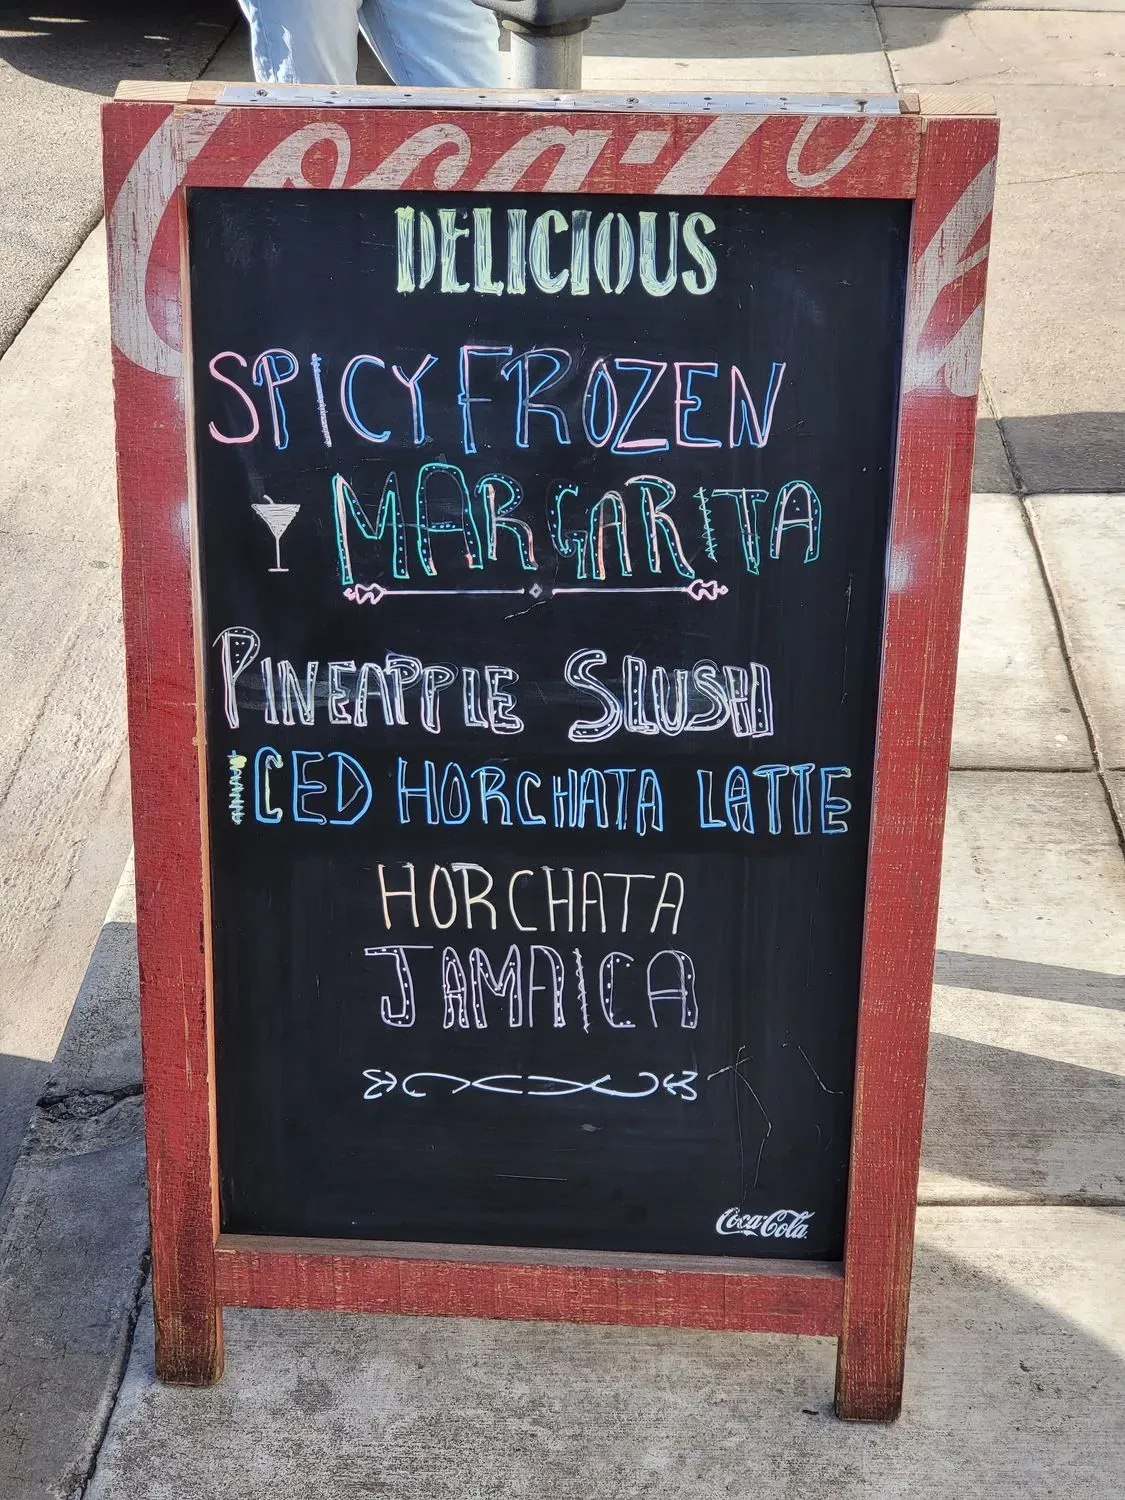 Coca-Cola
DELICIOUS
SPICY FROZEN
MARGARITA
PINEAPPLE SLUSH
ICED HORCHATA LATTE
HORCHATA
JAMAICA
Coca-Cola